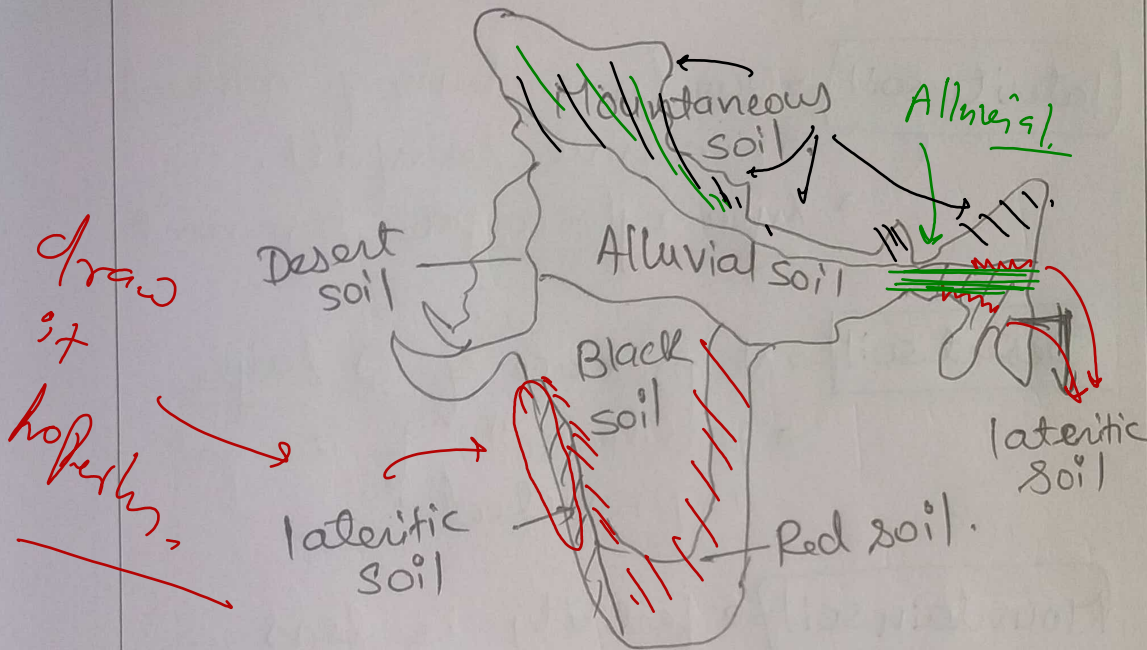 Mountaneous
soil
Alluvial
Desert
soil
Alluvial soil
draw
it
Black
soil
lateritic
soil
lateritic
soil
Red soil.